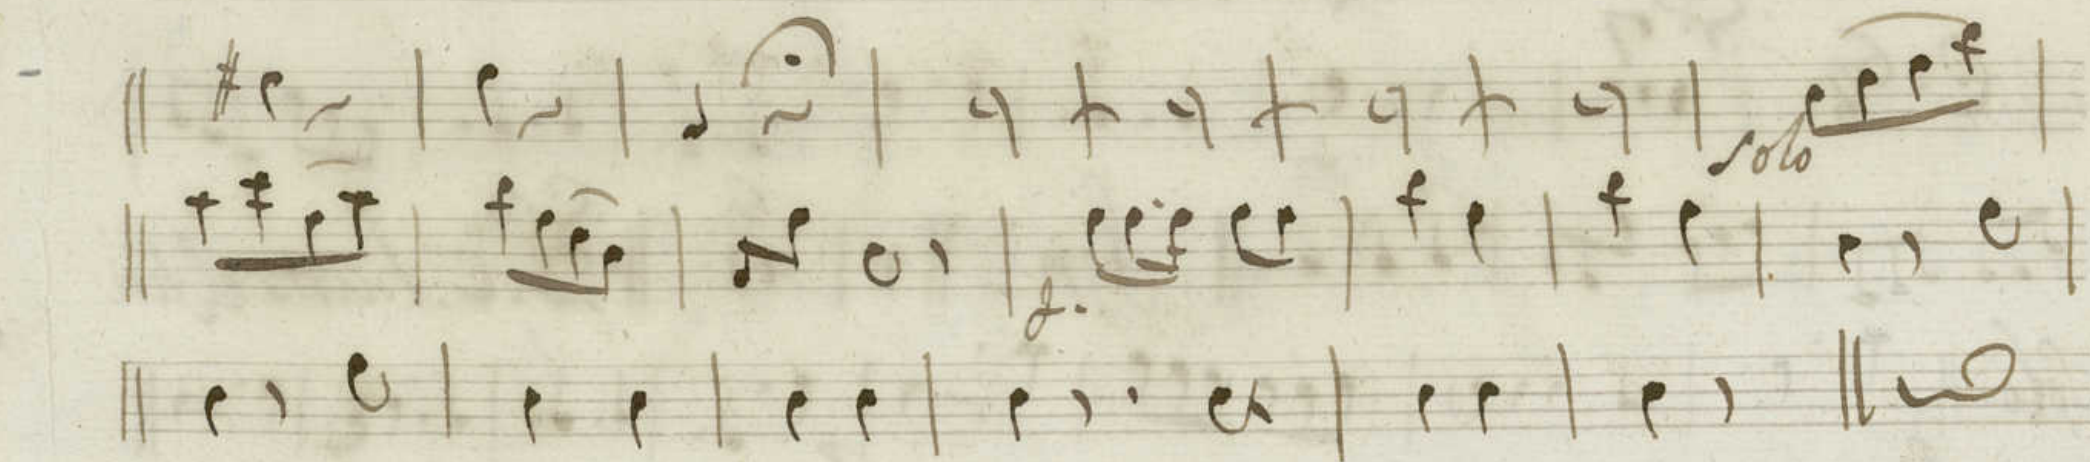 solo
f.